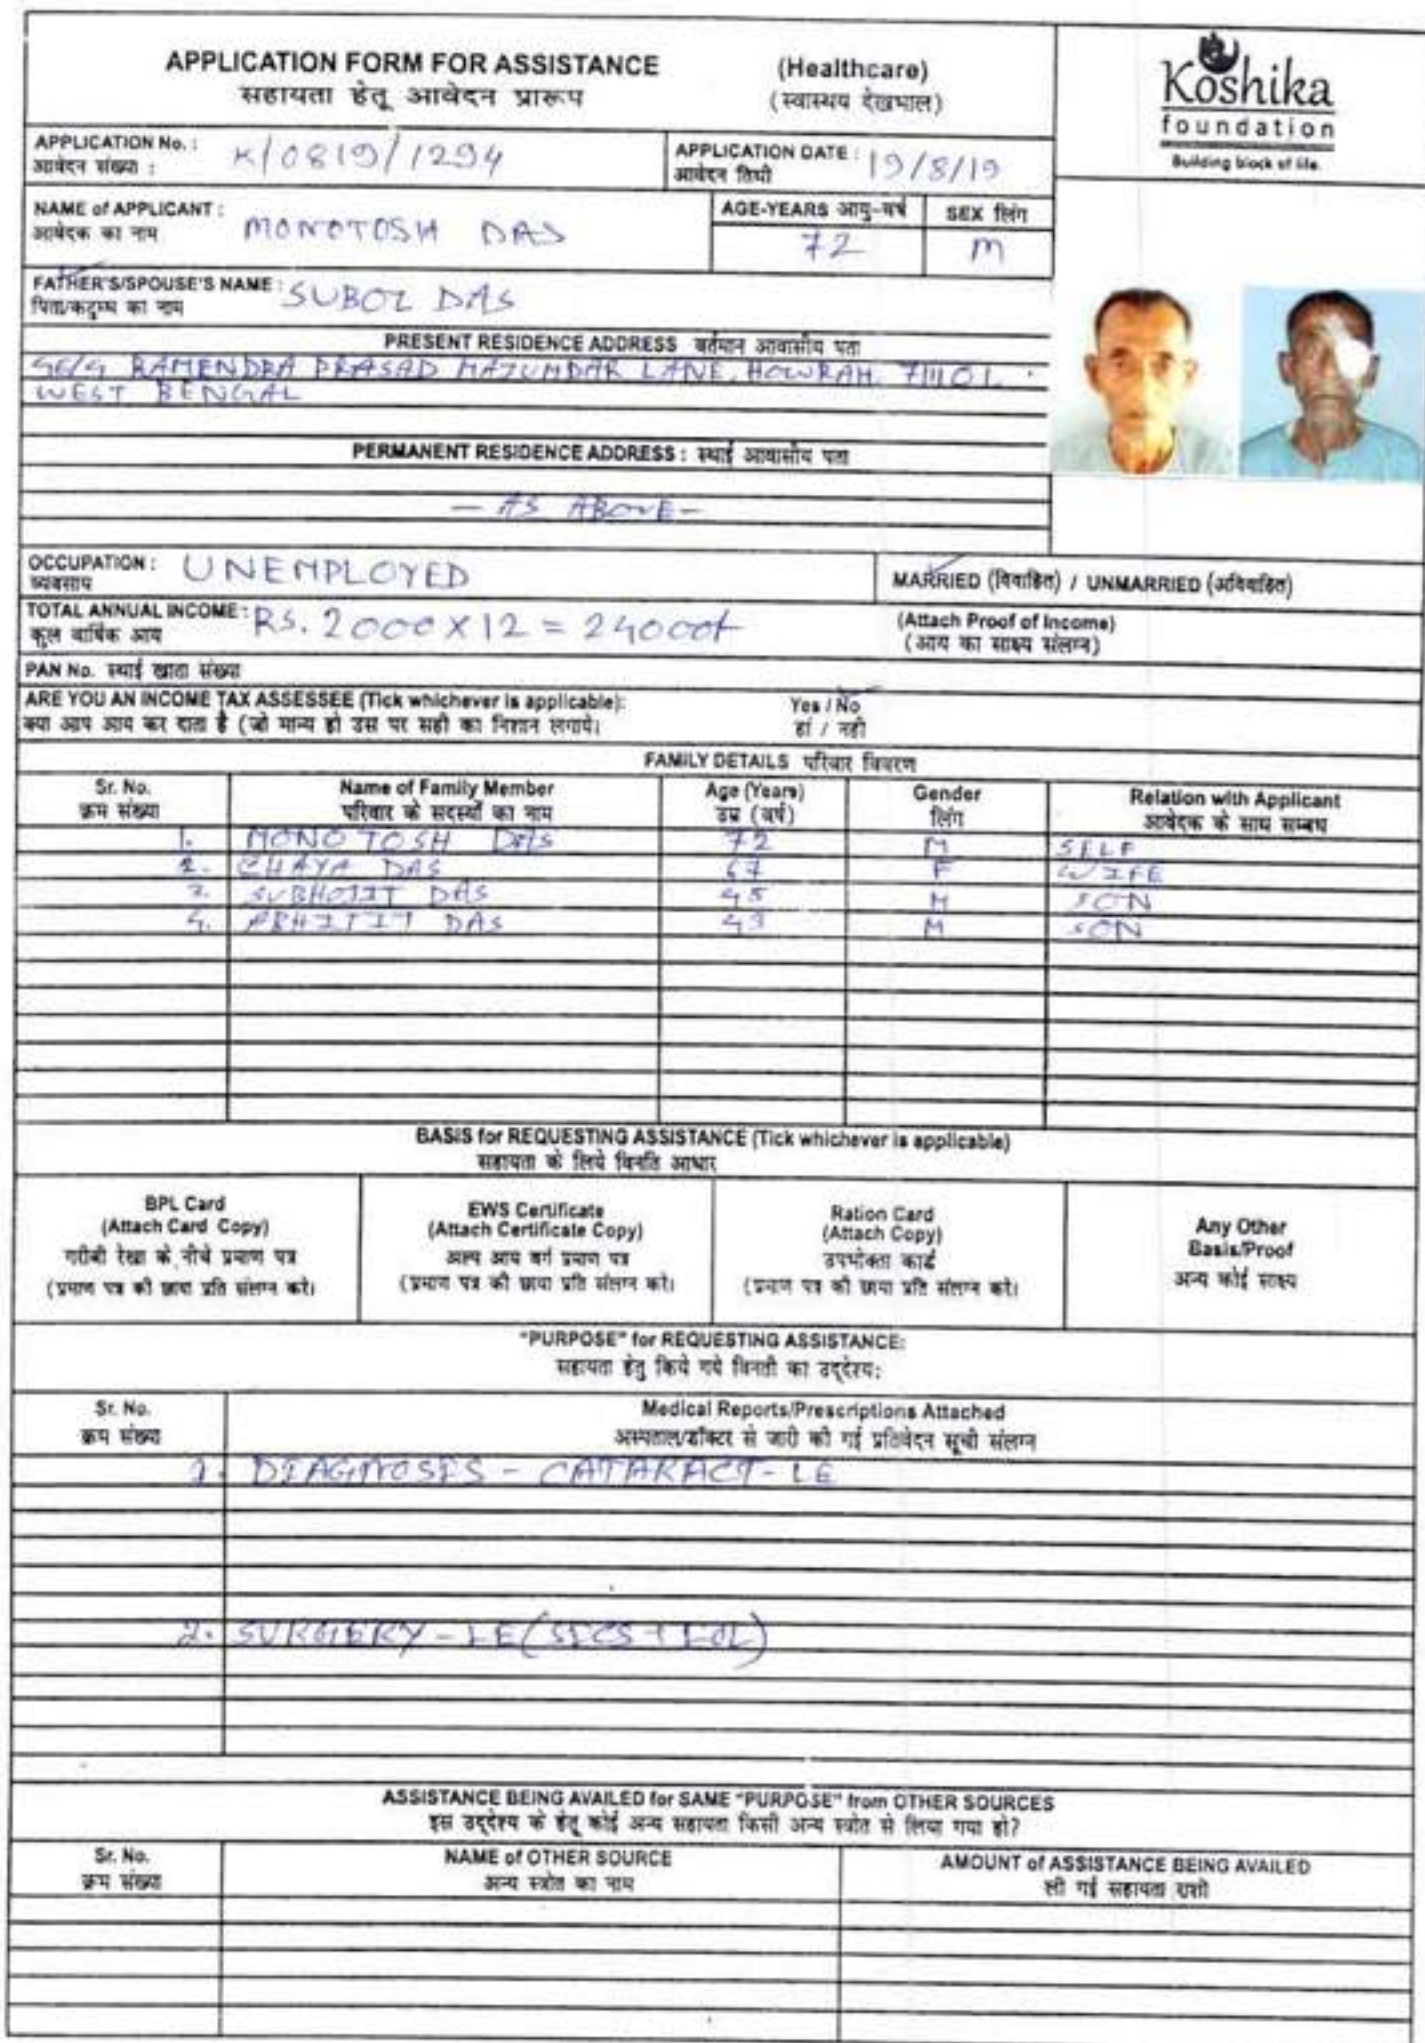 APPLICATION FORM FOR ASSISTANCE (Healthcare)
सहायता हेतू आवेदन प्रारूप (स्वास्थय देखभाल)
Koshika
foundation
Building block of life.
APPLICATION No. : K/0819/1294
आवेदन संख्या :
APPLICATION DATE : 19/8/19
आवेदन तिथी
NAME of APPLICANT : MONOTOSH DAS
आवेदक का नाम
AGE-YEARS आयु-वर्ष 72
SEX लिंग M
FATHER'S/SPOUSE'S NAME : SUBOL DAS
पिता/कटुम्ब का नाम
PRESENT RESIDENCE ADDRESS वर्तमान आवासीय पता
RAMENDRA PRASAD MAZUMDAR LANE, HOWRAH 711101.
WEST BENGAL
PERMANENT RESIDENCE ADDRESS : स्थाई आवासीय पता
- AS ABOVE -
OCCUPATION : UNEMPLOYED
व्यवसाय
MARRIED (विवाहित) / UNMARRIED (अविवाहित)
TOTAL ANNUAL INCOME : RS. 2000 X 12 = 24000/-
कुल वार्षिक आय
(Attach Proof of Income)
(आय का साक्ष्य संलग्न)
PAN No. स्थाई खाता संख्या
ARE YOU AN INCOME TAX ASSESSEE (Tick whichever is applicable): Yes / No
क्या आप आय कर दाता है (जो मान्य हो उस पर सही का निशान लगाये। हां / नही
FAMILY DETAILS परिवार विवरण
Sr. No. Name of Family Member Age (Years) Gender Relation with Applicant
क्रम संख्या परिवार के सदस्यों का नाम उम्र (वर्ष) लिंग आवेदक के साथ सम्बध
1. MONOTOSH DAS 72 M SELF
2. CHAYA DAS 67 F WIFE
3. SUBHOJIT DAS 45 M SON
4. ABHIJIT DAS 43 M SON
BASIS for REQUESTING ASSISTANCE (Tick whichever is applicable)
सहायता के लिये विनति आधार
BPL Card
(Attach Card Copy)
गरीबी रेखा के नीचे प्रमाण पत्र
(प्रमाण पत्र की छाया प्रति संलग्न करे।
EWS Certificate
(Attach Certificate Copy)
अल्प आय वर्ग प्रमाण पत्र
(प्रमाण पत्र की छाया प्रति संलग्न करे।
Ration Card
(Attach Copy)
उपभोक्ता कार्ड
(प्रमाण पत्र की छाया प्रति संलग्न करे।
Any Other
Basis/Proof
अन्य कोई साक्ष्य
"PURPOSE" for REQUESTING ASSISTANCE:
सहायता हेतु किये गये विनती का उद्देश्य:
Sr. No. Medical Reports/Prescriptions Attached
क्रम संख्या अस्पताल/डॉक्टर से जारी की गई प्रतिवेदन सूची संलग्न
1. DIAGNOSIS - CATARACT - LE
2. SURGERY - LE (SICS + IOL)
ASSISTANCE BEING AVAILED for SAME "PURPOSE" from OTHER SOURCES
इस उद्देश्य के हेतू कोई अन्य सहायता किसी अन्य स्त्रोत से लिया गया हो?
Sr. No. NAME of OTHER SOURCE AMOUNT of ASSISTANCE BEING AVAILED
क्रम संख्या अन्य स्त्रोत का नाम ली गई सहायता राशी